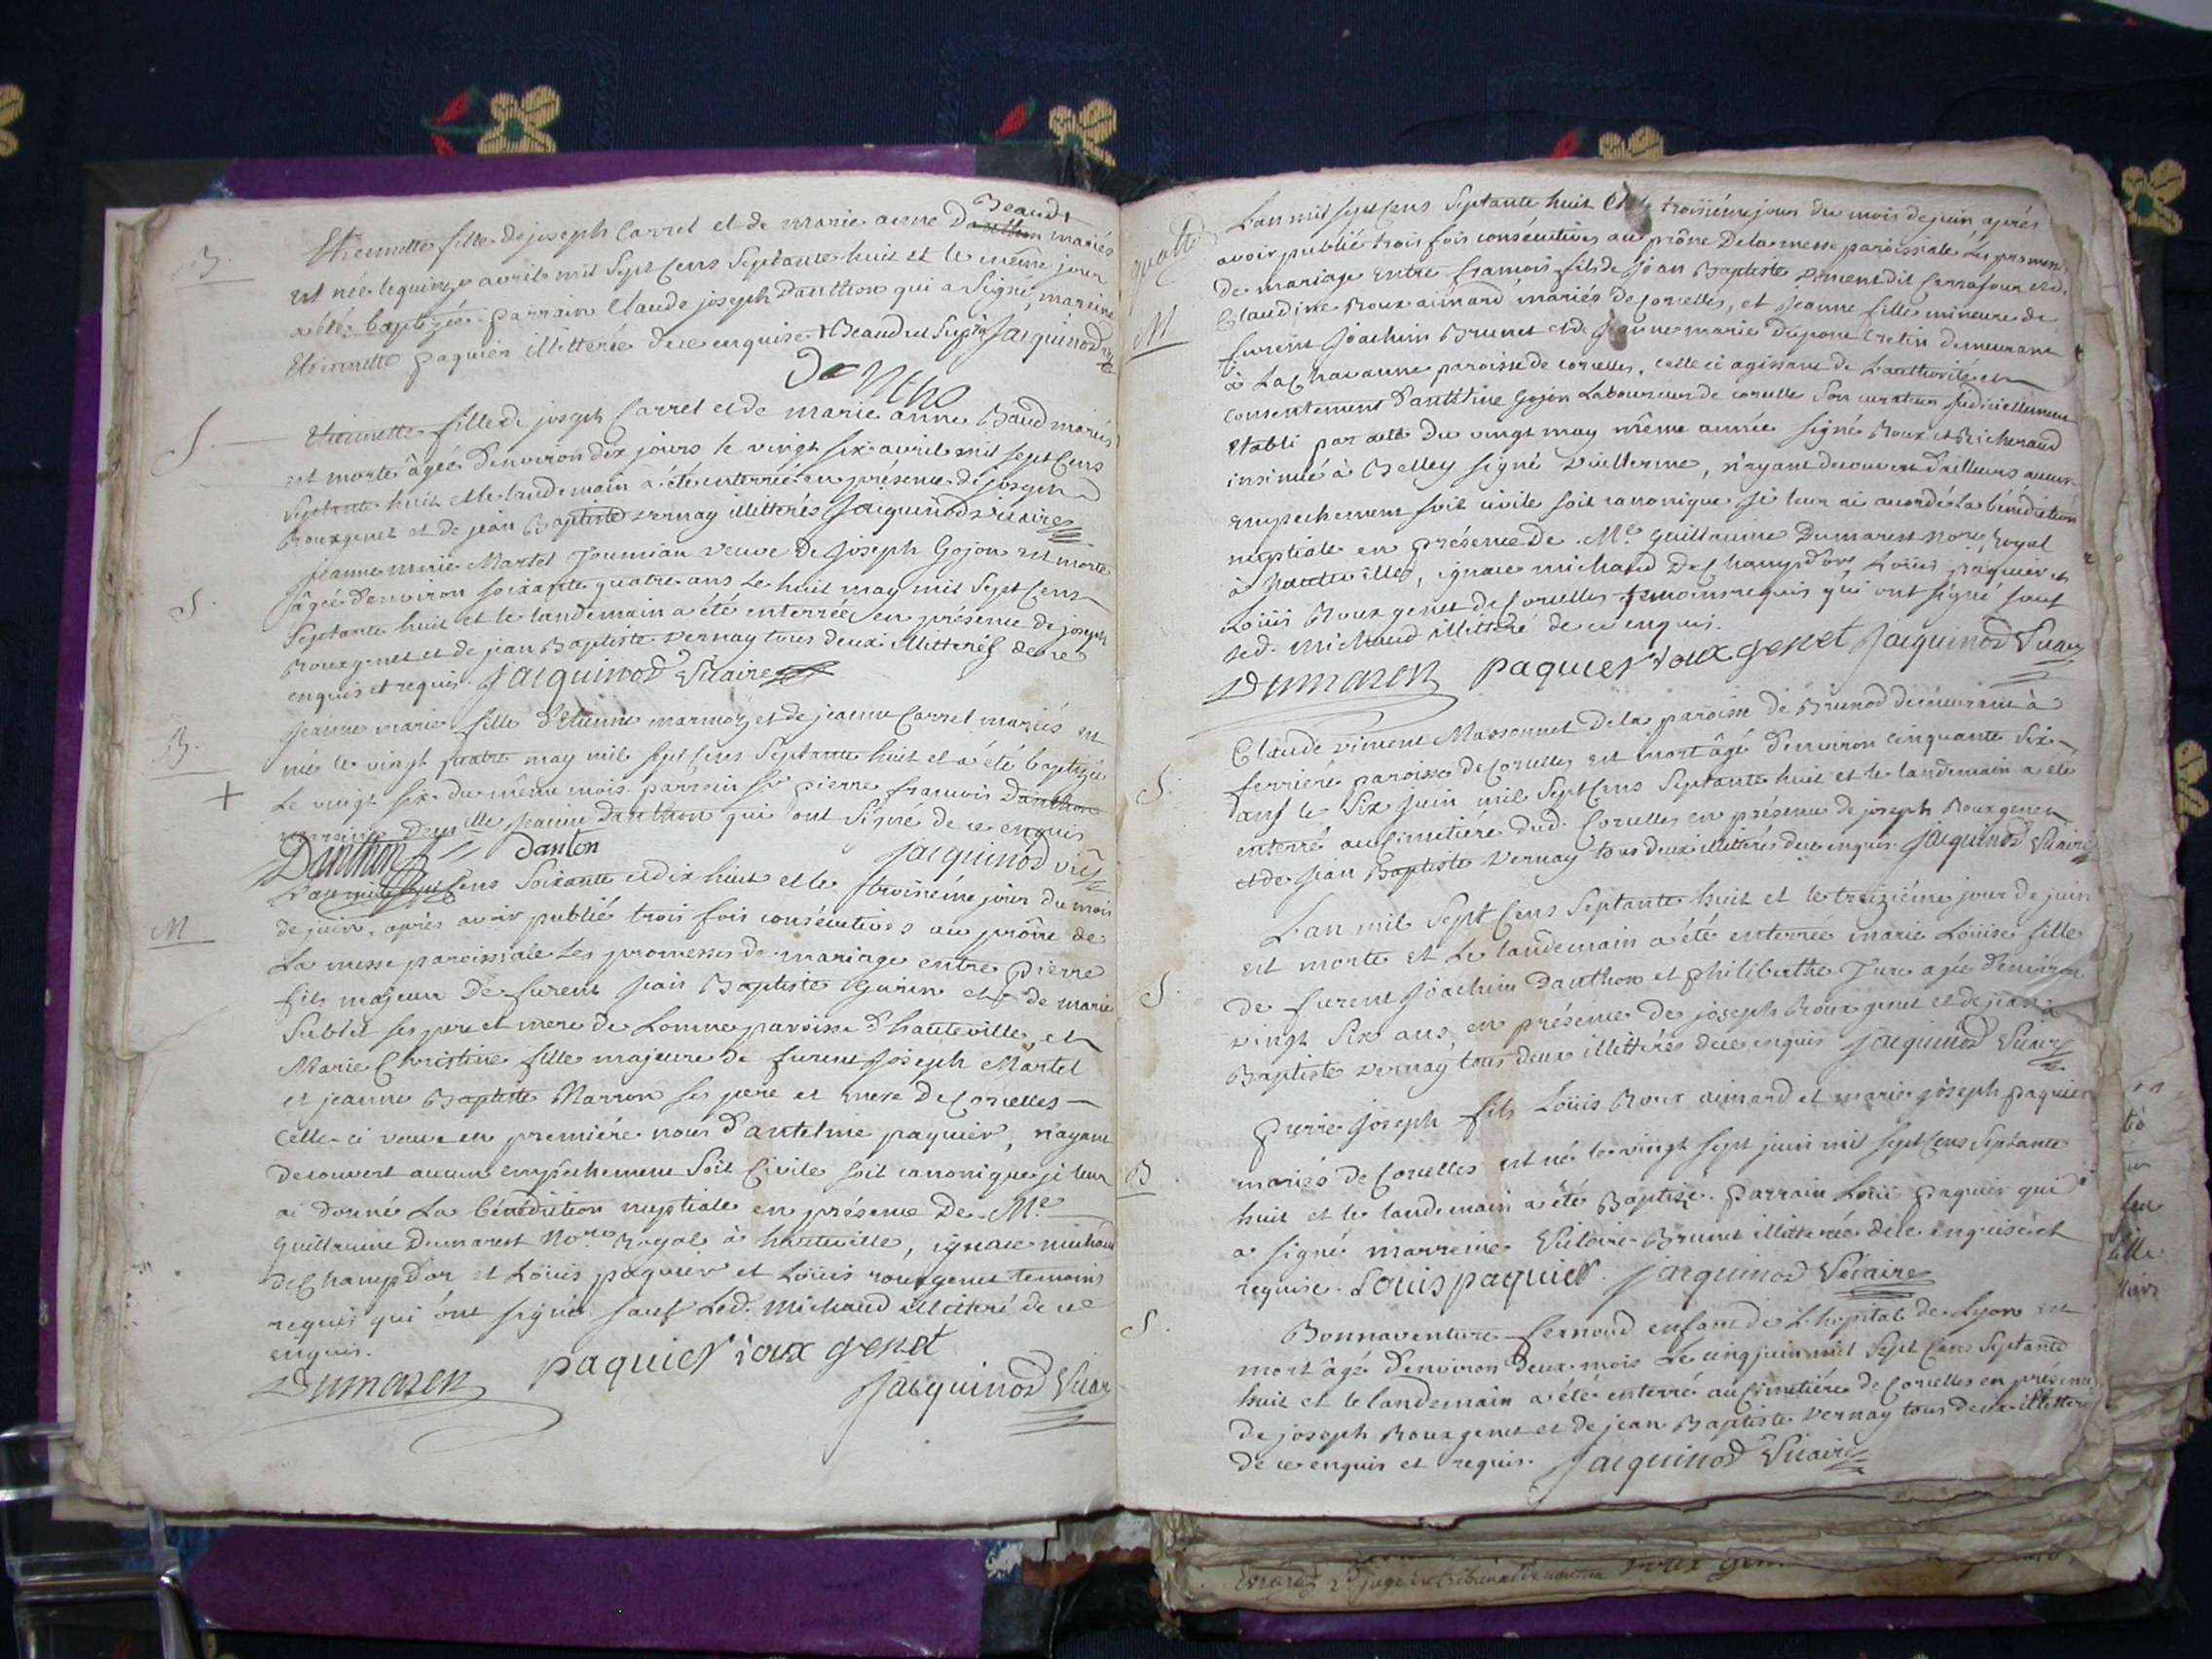 B.
Beaud +
Etiennette fille de joseph Carrel et de marie anne Danthon mariés
est née le quinze avril mil Sept Cens Septante huit et le même jour
a été baptizée. parrain Claude joseph Danthon qui a Signé, mareine
Etiennette paquier illitterée de ce enquise. + Beaud
Jacquinod
Dantho
S.
Etiennette fille de joseph Carrel et de marie anne Baud mariés
est morte âgée d'environ dix jours le vingt six avril mil sept Cens
Septante huit et le landemain a été enterrée en présence de joseph
Rouxgenet et de jean Baptiste vernay illitterés Jacquinod vicaire
S.
Jeanne marie Martel Joumian veuve de Joseph Gojon est morte
âgée d'environ soixante quatre ans le huit may mil Sept Cens
Septante huit et le landemain a été enterrée en présence de joseph
Rouxgenet et de jean Baptiste vernay tous deux illitterés de ce
enquis et requis. Jacquinod Vicaire
B.
+
Jeanne marie fille d'Etienne marinoz et de jeanne Carrel mariés est
née le vingt quatre may mil sept Cens Septante huit et a été baptizée
Le vingt six du même mois. parrain Sr pierre francois Danthon
marreine Demlle Jeanne Danthon qui ont Signé de ce enquis
Danthon danton Jacquinod vic
M
L'an mil sept Cens Soixante et dix huit et le troisième jour du mois
de juin, après avoir publié trois fois consécutives au prône de
La messe paroissiale Les promesses de mariage entre Pierre
fils majeur De furent Jean Baptiste Guinin et de marie
Sublet ses pere et mere de Lomne paroisse d'hauteville, et
Marie Christine fille majeure de furent Joseph Martel
et jeanne Baptiste Marron ses pere et mere De Corcelles
celle-ci veuve en première nous d'antelme paquier, n'ayant
decouvert aucun empêchement Soit Civile soit canonique je leur
ai donné La bénédiction nuptiale en présence De Me
Guillaume Dumarest Nore Royal à hauteville, ignace michaud
De Champ d'or et Loüis paquier et Loüis rouxgenet temoins
requis qui ont signé sauf Led. Michaud illitteré de ce
enquis.
Dumarest paquier roux genet
Jacquinod Vicar
M
L'an mil sept Cens Septante huit et le troisième jour du mois de juin après
avoir publié trois fois consécutives au prône De la messe paroissiale Les promesses
de mariage Entre francois fils de Jean Baptiste
Claudine Roux aimard mariés de Corcelles, et Jeanne fille mineure de
furent Joachim Brunet et de Jeanne marie Dupont Cretin demeurant
à La Chavanne paroisse de corcelles, celle ci agissant de L'authorité et
consentement d'antelme Gojon Laboureur de corcelle son curateur judiciellement
établi par acte du vingt may même année signé Roux et Richeraud
insinué à Belley signé vuillerme, n'ayant decouvert d'ailleurs aucun
empechement soit civile soit canonique je leur ai accordé La bénédiction
nuptiale en présence de Me Guillaume Dumarest Nore Royal
à hauteville, ignace michaud De Champ d'or, Loüis paquier et
Loüis Rouxgenet de Corcelles temoins requis qui ont signé sauf
led. Michaud illitteré de ce enquis.
Dumarest paquier roux genet Jacquinod Vicar
S.
Claude vincent Massonnet De la paroisse de Brenod demeurant à
ferriere paroisse de Corcelles est mort âgé d'environ cinquante six
ans le Six Juin mil Sept Cens Septante huit et le landemain a été
enterré au Cimetiére dud. Corcelles en présence de joseph Rouxgenet
et de Jean Baptiste Vernay tous deux illiterés de ce enquis. Jacquinod Vicaire
S.
L'an mil Sept Cens Septante huit et le treizième jour de juin
est morte et Le landemain a été enterrée marie Loüise fille
de furent Joachim Danthon et philiberthe Jure agée d'environ
vingt Six ans, en présence de joseph Roux genet et de jean
Baptiste vernay tous deux illitterés de ce enquis Jacquinod Vicar
B.
Pierre Joseph fils Loüis Roux aimard et marie joseph paquier
mariés de Corcelles est né le vingt sept juin mil sept Cens Septante
huit et le landemain a été Baptizé. Parrain Loüis Paquier qui
a signé marreine Victoire Brunet illitterée de ce enquise et
requise. Louis paquier. Jacquinod Vicaire
S.
Bonnaventure fernoud enfant de L'hopital de Lyon est
mort âgé d'environ deux mois Le cinq juin mil Sept Cens Septante
huit et le landemain a été enterré au Cimetiére de Corcelles en présence
de joseph Rouxgenet et de jean Baptiste Vernay tous deux illitterés
de ce enquis et requis. Jacquinod Vicaire